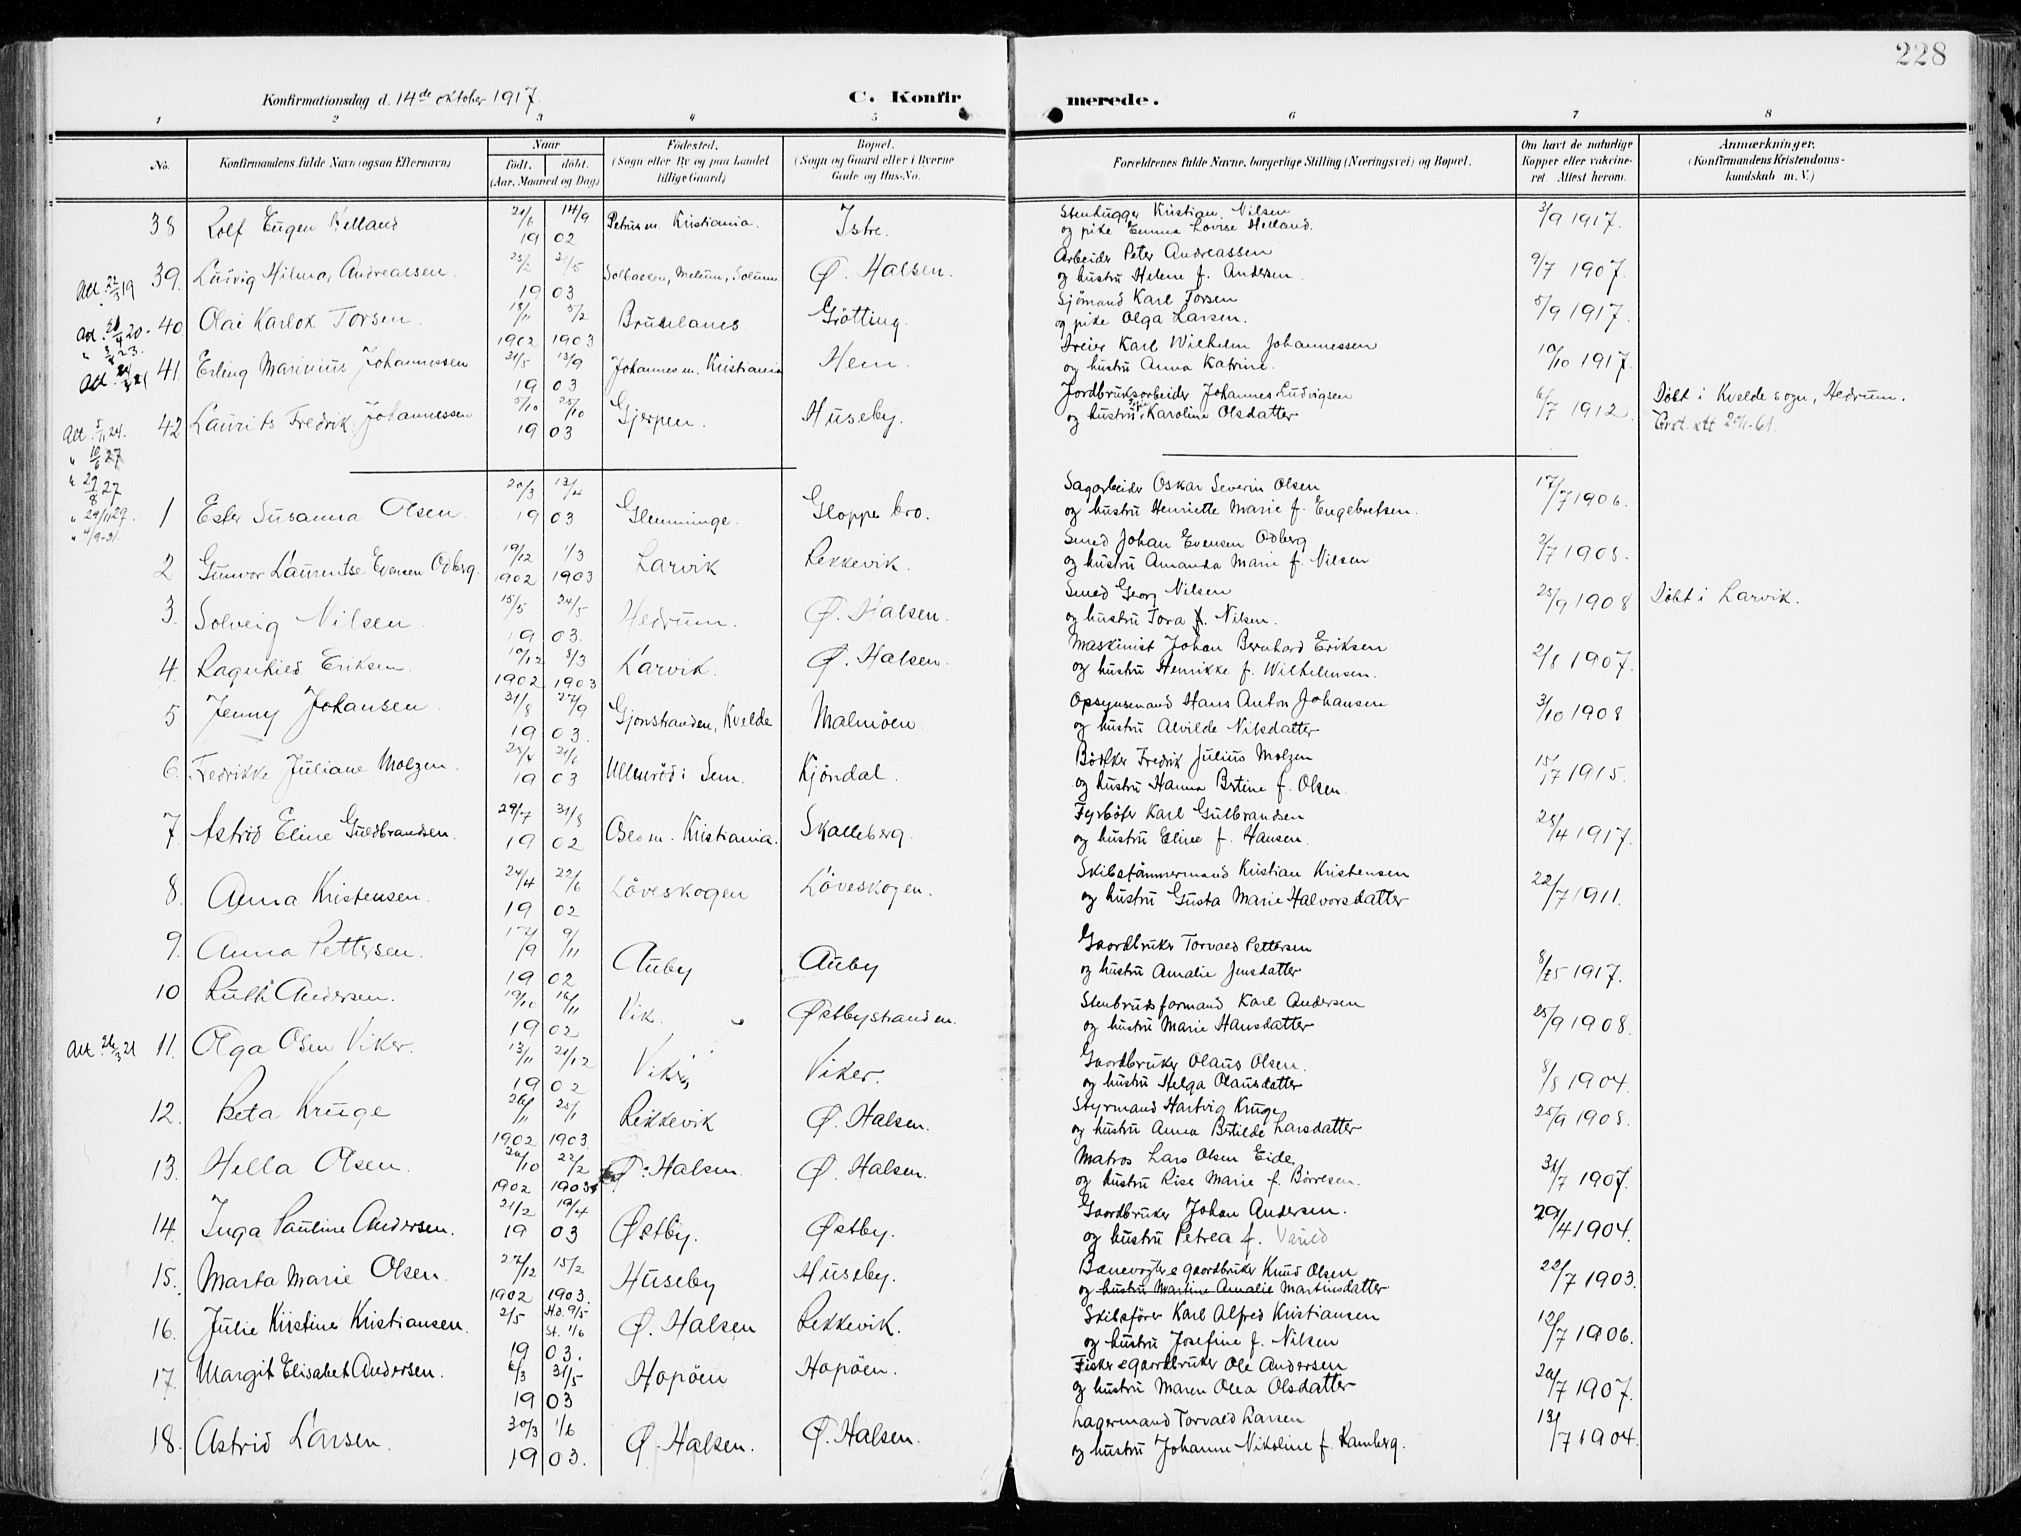 228
Konfirmationsdag d. 14de oktober 1917.
C. Konfirmerede.
1 2 3 4 5 6 7 8
No. Konfirmandens fulde Navn (ogsaa Efternavn) Naar født. døbt. (Aar, Maaned og Dag) Fødested. (Sogn eller By og paa Landet tillige Gaard) Bopæl. (Sogn og Gaard eller i Byerne Gade og Hus-No. Forældrenes fulde Navne, borgerlige Stilling (Næringsvei) og Bopæl. Om havt de naturlige Kopper eller vaccineret. Attest herom. Anmærkninger. (Konfirmandens Kristendomskundskab m. V.)
38 Rolf Eugen Helland 21/6 14/9 1902 Petrus m. Kristiania. Istre. Stenhugger Kristian Nilsen
og pike Emma Lovise Helland. 3/9 1917.
Att. 22/3 19 39. Ludvig Hilmar Andreassen. 23/2 21/5 1903 Solbacken, Melum, Solum Ø. Halsen. Arbeider Peter Andreassen
og hustru Helene f. Andersen 9/7 1907.
40 Olai Karlok Torsen. 18/11 5/2 1902 1903 Brunlanes Grötting. Sjömand Karl Torsen
og pike Olga Larsen. 5/9 1917.
41. Erling Marinius Johannessen 31/5 13/9 1903 Johannes m. Kristiania Hem. Dreier Karl Wilhelm Johannessen
og hustru Anna Katrine. 10/10 1917.
Att. 5/1 24. 42 Laurits Fredrik Johannessen 5/10 25/10 1903 Gjerpen. Huseby. Jordbruksarbeider Johannes Ludvigsen
og hustru Karoline Olsdatter 6/7 1912. Döbt i Kvelde sogn, Hedrum.
" 10/6 27
" 29/8 27
" 29/11 29.
" 4/9-31.
1 Ester Susanna Olsen. 20/3 13/4 1903 Glemminge. Gloppe bro. Sagarbeider Oskar Severin Olsen
og hustru Henriette Marie f. Engebretsen. 17/7 1906.
2 Gunvor Laurentse Evensen Odberg. 19/12 1/3 1902 1903 Larvik Rekkevik. Smed Johan Evensen Odberg
og hustru Amanda Marie f. Nilsen 2/7 1908.
3. Solveig Nilsen. 15/5 24/5 1903. Hedrum. Ø. Halsen. Smed Georg Nilsen
og hustru Tora f. Nilsen. 25/9 1908 Döbt i Larvik.
4. Ragnhild Eriksen. 10/12 8/3 1902 1903 Larvik. Ø. Halsen. Maskinist Johan Bernhard Eriksen
og hustru Henrikke f. Wilhelmsen. 2/8 1907.
5 Jenny Johansen 31/8 27/9 1903. Gjonstranden, Kvelde Malmöen. Opsynsmand Hans Anton Johansen
og hustru Alvilde Nilsdatter 3/10 1908
6. Fredrikke Juliane Molzen. 25/4 21/6 1903 Ullenröd i Sem. Kjöndal. Bödker Fredrik Julius Molzen
og hustru Hanna Bertine f. Olsen. 15/7 1915.
7. Astrid Eline Guldbrandsen. 29/7 31/8 1902 Oslo m. Kristiania. Skalleberg. Fyrböter Karl Gulbrandsen
og hustru Eline f. Hansen. 25/4 1917.
8. Anna Kristensen. 24/4 22/6 1902 Löveskogen Löveskogen. Skibstömmermand Kristian Kristensen
og hustru Gusta Marie Halvorsdatter 22/7 1911.
9. Anna Pettersen. 17/9 9/11 1902 Auby Auby Gaardbruker Torvald Pettersen
og hustru Amalie Jensdatter 1917.
10 Ruth Andersen. 19/10 16/11 1902 Vik. Østbystranden. Stenbrudsformand Karl Andersen
og hustru Marie Hansdatter 25/9 1908.
Att. 26/3 21 11. Olga Olsen Viker. 13/11 21/12 1902 Viker Viker. Gaardbruker Olaus Olsen.
og hustru Helga Olausdatter 8/8 1904.
12. Beta Kruge 26/11 25/1 1902 1903. Rekkevik Ø. Halsen. Styrmand Hartvig Kruge
og hustru Anna Botilde Larsdatter 25/9 1908.
13. Hella Olsen. 20/10 22/2 1902 1903. Ø. Halsen. Ø. Halsen. Matros Lars Olsen Eide,
og hustru Rise Marie f. Börresen. 31/7 1907.
14. Inga Pauline Andersen. 21/2 19/4 1903 Østby. Østby. Gaardbruker Johan Andersen.
og hustru Petrea f. 29/4 1904.
15. Marta Marie Olsen. 27/12 15/2 1902 1903. Huseby Huseby. Banevogter & gaardbruker Knud Olsen
og hustru Martine Amalie Martinsdatter 22/7 1903.
16. Julie Kirstine Kristiansen. 2/5 Hd. 9/5 St. 1/6 1903. Ø. Halsen Rekkevik. Skibsförer Karl Alfred Kristiansen
og hustru Josefine f. Nilsen 12/7 1906.
17. Margit Elisabet Andersen. 6/3 31/5 1903 Hopöen Hopöen. Fisker & gaardbruker Ole Andersen
og hustru Maren Olea Olsdatter 20/7 1907.
18. Astrid Larsen. 30/3 1/6 1903. Ø. Halsen. Ø. Halsen. Lagermand Torvald Larsen
og hustru Johanne Nikoline f. Ramberg. 13/7 1904.